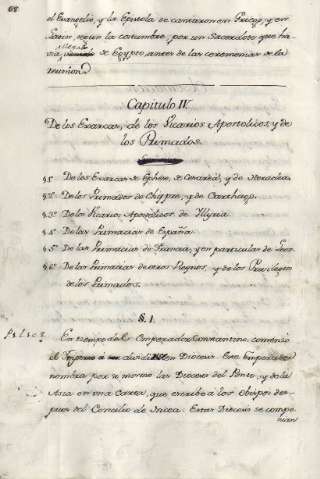 68
el Evangelio, y la Epistola se cantaron en Griego, y en
Latin, segun la costumbre, por un Sacerdote que ha-
via llegado de Egypto, antes de las ceremonias de la
reunion.
Capitulo IV.
De los Exarcas, de los Vicarios Apostolicos, y de
los Primados.
§.1º De los Exarcas de Epheso, de Cesaréa, y de Heraclea.
§.2º De los Primados de Chypre, y de Carthago.
§.3º De los Vicarios Apostolicos de Illyria.
§.4º De las Primacias de España.
§.5º De las Primacias de Francia, y en particular de Leon.
§.6º De las Primacias de otros Reynos, y de los Privilegios
de los Primados.
§. I.
En tiempo del Emperador Constantino comenzó
el Imperio á dividirse en Diocesis. Este Emperador
nombra por si mismo las Diocesis del Ponto, y de la
Asia en una Carta, que escribió á los Obispos des-
pues del Concilio de Nicea. Estas Diocesis se compo-
nian